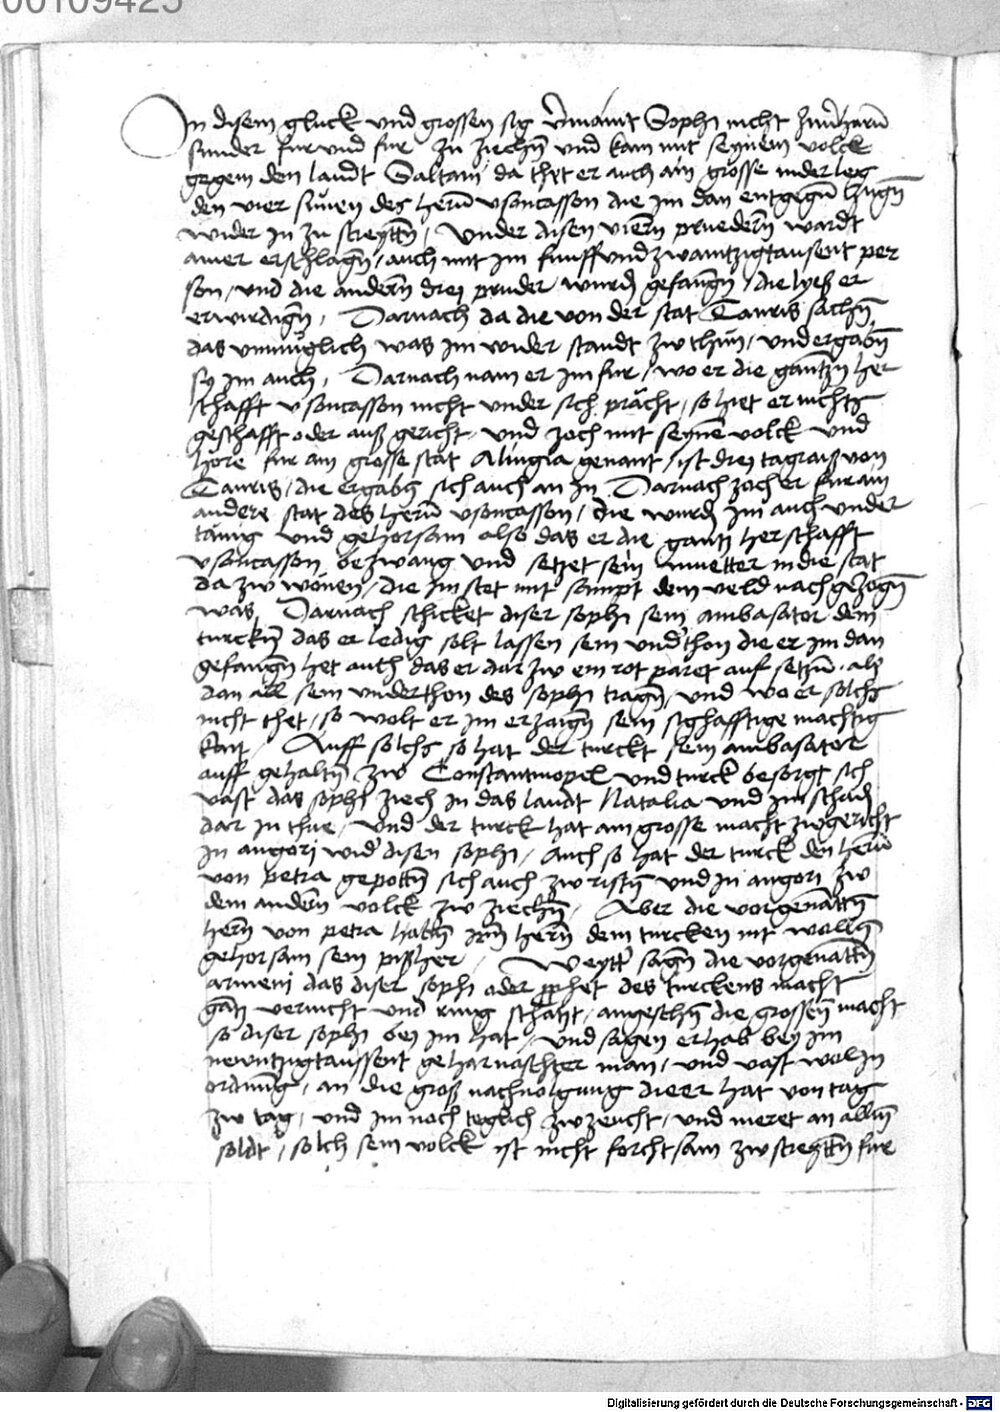 00109425
In disem gluck und grossen sig vermaint Sophi nicht zuuerharn
sunder fur und fur zu ziechn und kam mit seynem volck
gegem den landt Saltani da thet er auch ain grosse niderleg
den vier sunen des hern usoncasson die im dan entgegn zugn
wider in zu streyttn, Under disen viern pruedern wardt
ainer erschlagn, auch mit im funffundzwaintzigtausent per
son, und die andern drei pruder wurdn gefangn, die lyeß er
erwirdign, Darnach da die von der stat Tauris sachn
das unmuglich was im wider standt zw thun, und ergabn
sy im auch, Darnach nam er im fur, wo er die gantzn her
schafft usoncasson nicht under sich pracht, so hiet er nichts
geschafft oder auß gericht, und zoch mit seyne volck und
hore fur ain grosse stat Alingia genant, ist drei tagraiß von
Tauris, die ergabn sich auch an in, Darnach zoch er fur ain
andere stat des hern usoncasson, die wurdn im auch under
tanig und gehorsam also das er die gantz herschafft
usoncasson bezwang und setzet sein muetter in die stat
da zw wonen, die im stet mit sampt dem veld nach gezogn
was, Darnach schicket diser sophi sein ambasator dem
turckn das er ledig solt lassen sein underthon die er im dan
gefangn het auch das er dar zw ein rot paret auf setzn, als
dan all sein underthon des sophi tragn, und wo er solchs
nicht thet, so wolt er im erzaign sein sighafftige machtig
kait, Auff solchs so hat der turckt sein ambasator
auff gehaltn zw Constantinopel und turck besorgt sich
vast das sophi ziech in das landt Natalia und im schadn
dar in thue, und der turck hat ain grosse macht zwgericht
in angori wid disen sophi, auch so hat der turck den hern
von petra gepottn sich auch zw ristn und in angori zw
dem andern volck zw ziechn, Aber die vorgenattn
hern von petra habn irm hern dem turcken nit wolln
gehorsam sein pißher, Weytter sagn die vorgenattn
armeni das diser sophi oder prophet des turckens macht
gantz vernicht und ring schatzt, angesechn die grossen macht
so diser sophi bei im hat, und sagen er hab bey im
newntzigtaussent geharnaschter man, und vast wol in
ordnung, an die groß nachvolgung die er hat von tag
zw tag, und im noch teglich zwzeucht, und meret an allm
soldt, solch sein volck ist nicht forchtsam zw streyttn fur
Digitalisierung gefördert durch die Deutsche Forschungsgemeinschaft - DFG